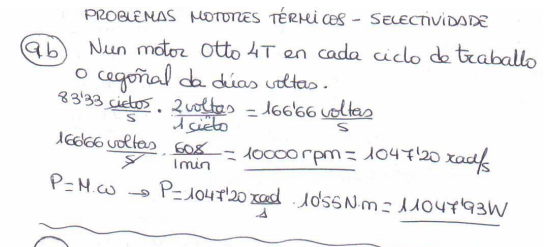 PROBLEMAS MOTORES TÉRMICOS - SELECTIVIDADE
9b Nun motor Otto 4T en cada ciclo de traballo
o cegoñal da dúas voltas.
83'33 ciclos/s · 2 voltas/1 ciclo = 166'66 voltas/s
166'66 voltas/s · 60s/1min = 10000 rpm = 1047'20 rad/s
P=M.ω → P=1047'20 rad/s · 10'55N.m = 11047'93W